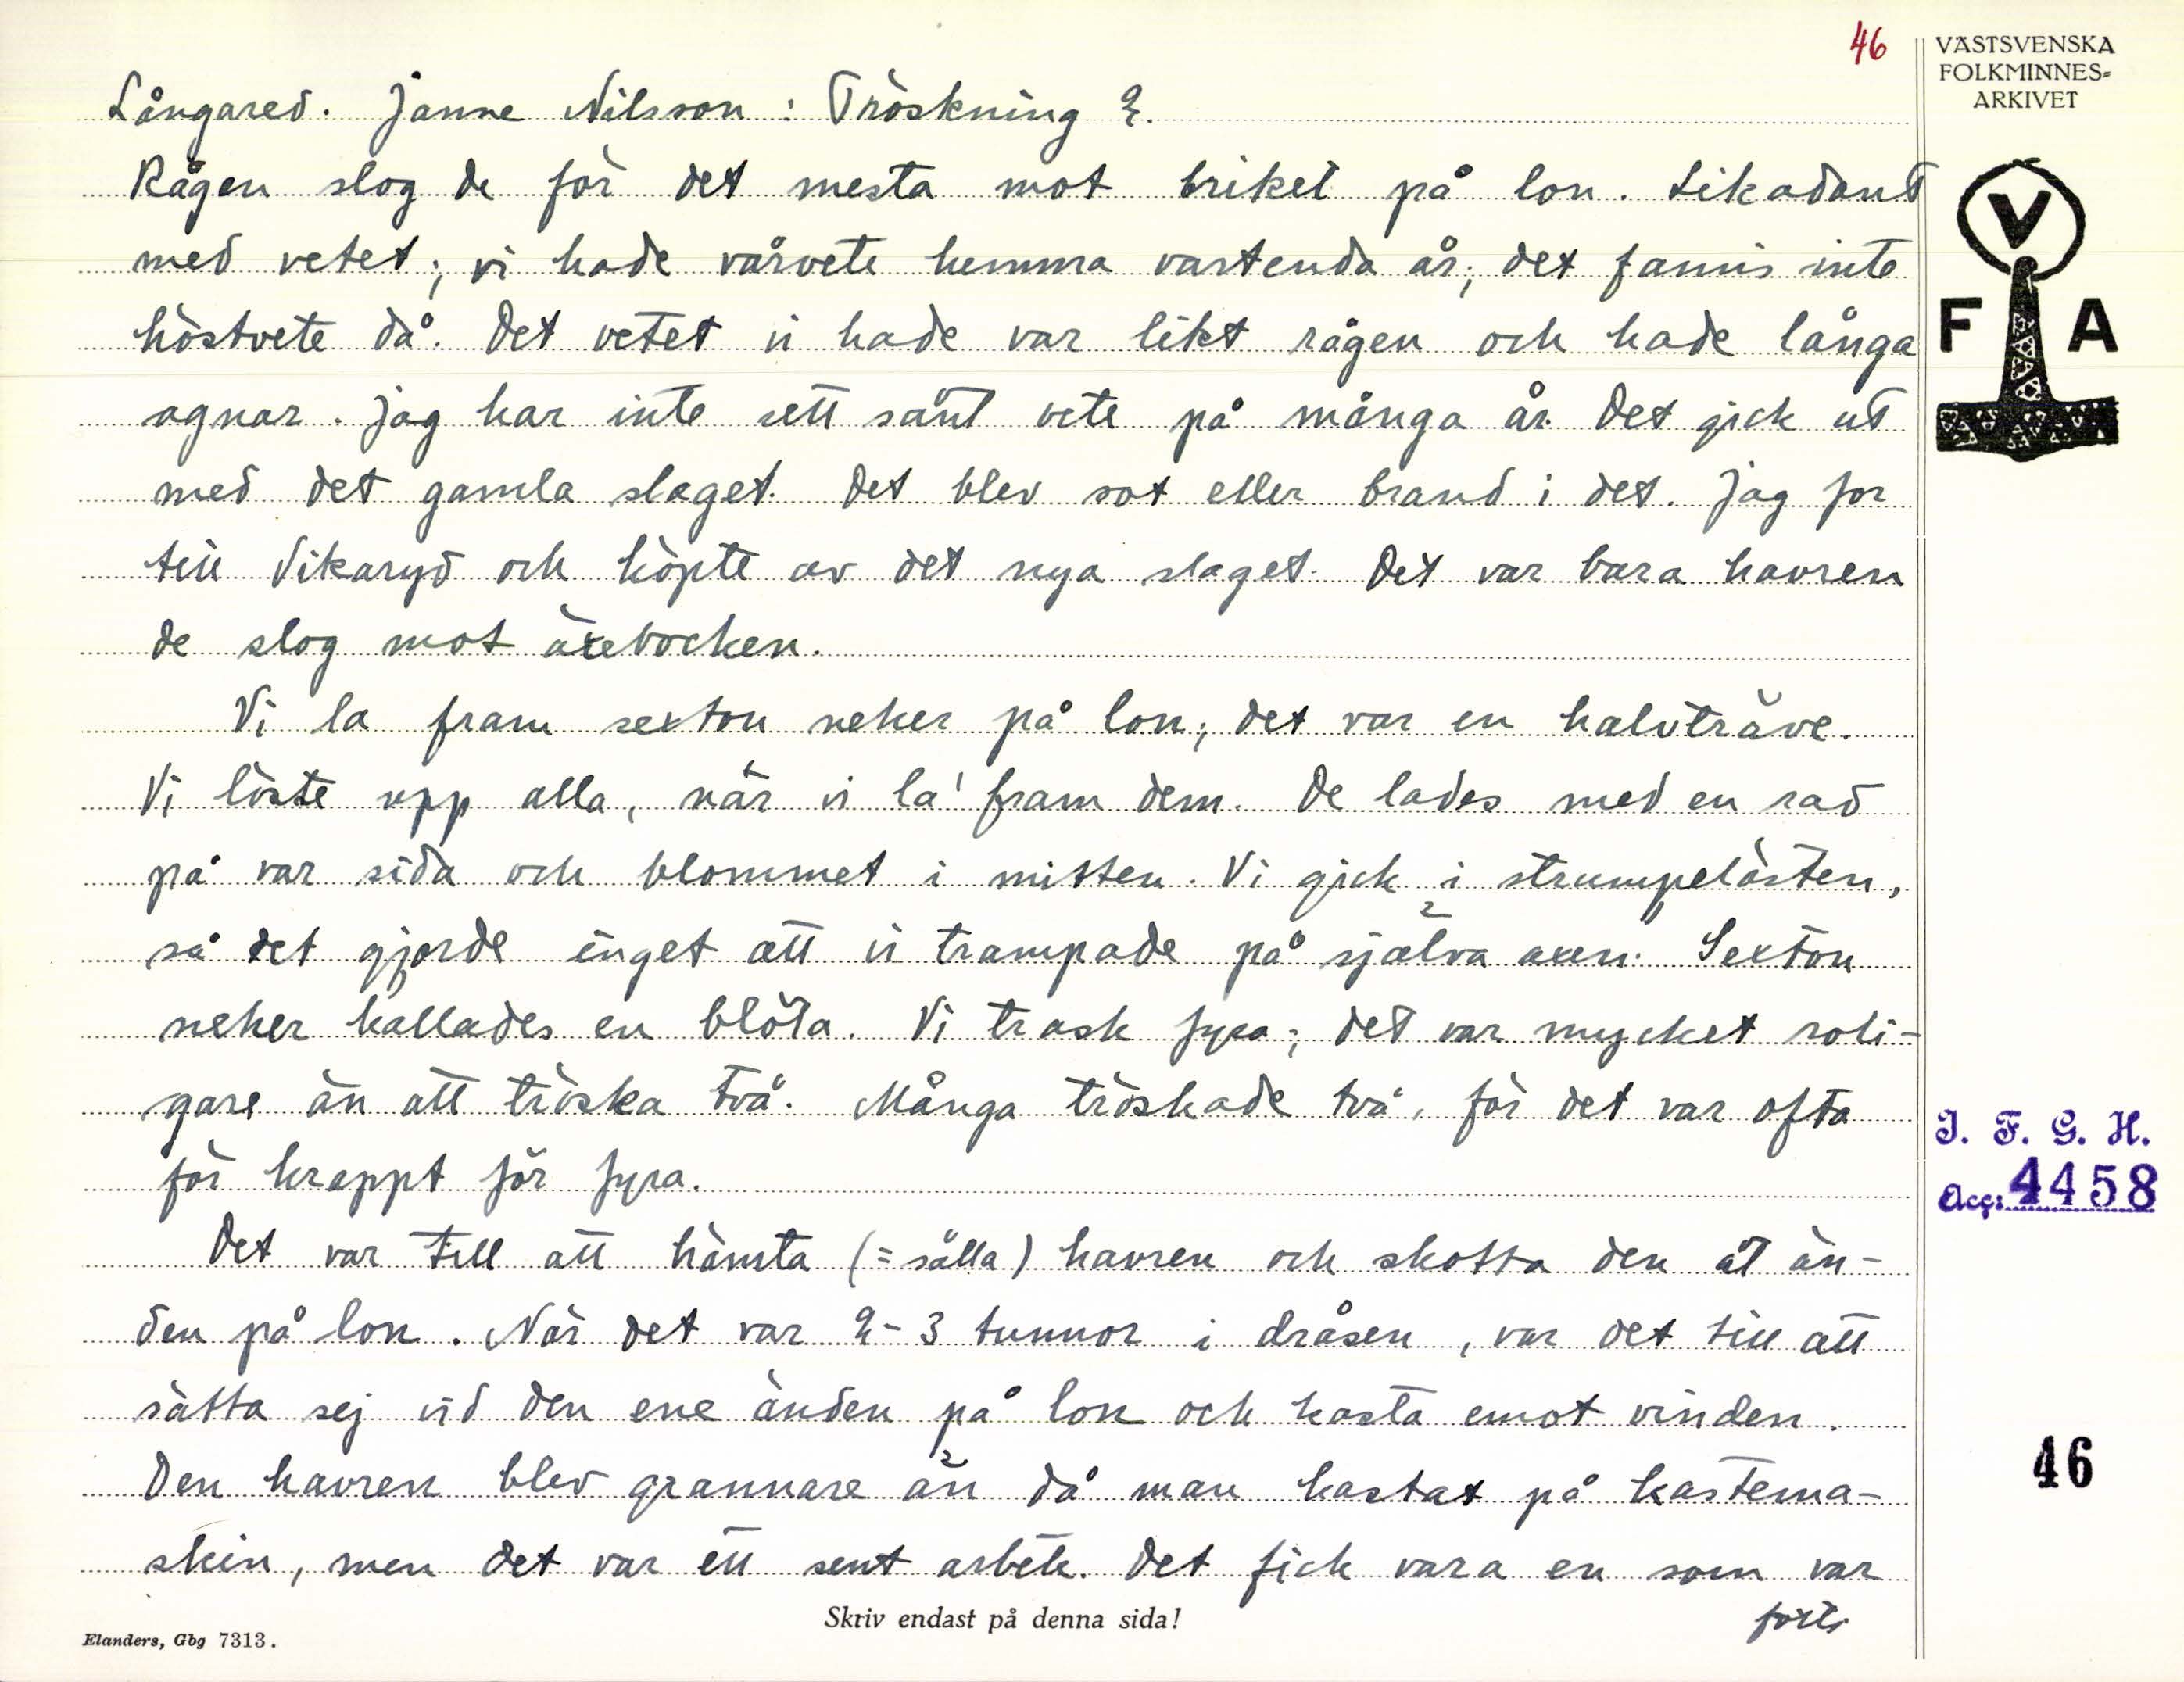 46
VÄSTSVENSKA
FOLKMINNES-
ARKIVET
Långared. Janne Nilsson: Tröskning 2.
Rågen slog de för det mesta mot briket på lon. Likadant
med vetet; vi hade vårvete hemma vartenda år; det fanns inte
höstvete då. Det vetet vi hade var likt rågen och hade långa
agnar. Jag har inte sett sånt vete på många år. Det gick ut
med det gamla slaget. Det blev sot eller brand i det. Jag for
till Vikaryd och köpte av det nya slaget. Det var bara havren
de slog mot äxebocken.
Vi la fram sexton neker på lon; det var en halvträve.
Vi löste upp alla, när vi la' fram dem. De lades med en rad
på var sida och blommet i mitten. Vi gick i strumpelästen,
så det gjorde inget att vi trampade på själva axen. Sexton
neker kallades en blöta. Vi trask fyra; det var mycket roli-
gare än att tröska två. Många tröskade två, för det var ofta
för knappt för fyra.
Det var till att hämta (= sålla) havren och skotta den åt än-
den på lon. När det var 2-3 tunnor i dråsen, var det till att
sätta sej vid den ene änden på lon och kasta emot vinden.
Den havren blev grannare än då man kastat på kastema-
skin, men det var ett sent arbete. Det fick vara en som var
forts.
V
F A
I. F. G. H.
Acc: 4458
46
Skriv endast på denna sida!
Elanders, Gbg 7313.